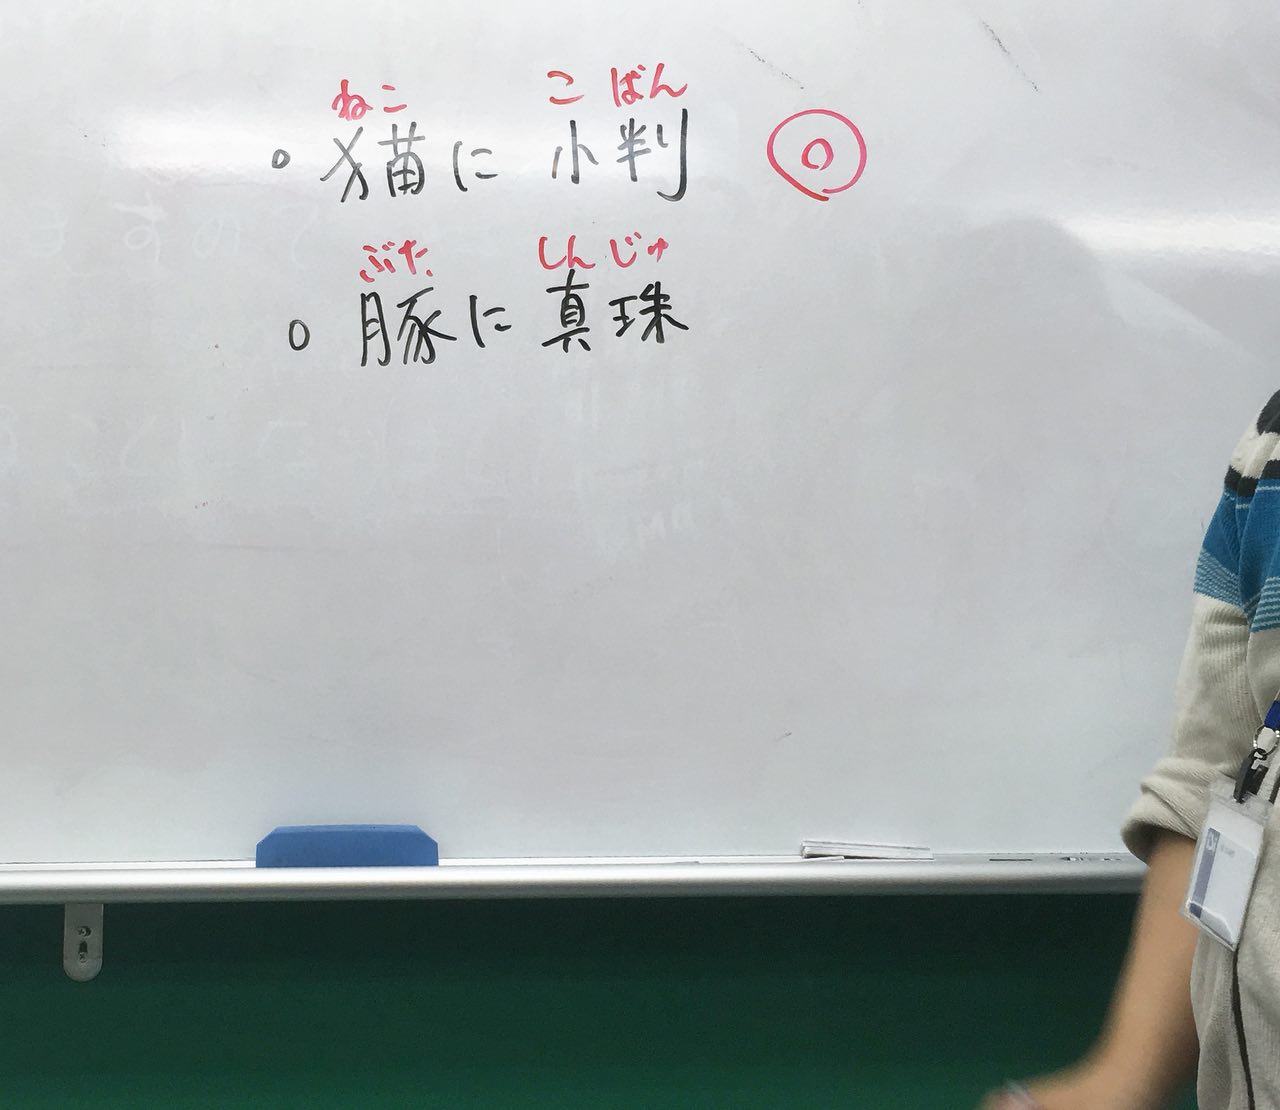 ねこ こばん
○ 猫に 小判
ぶた しんじゅ
○ 豚に 真珠